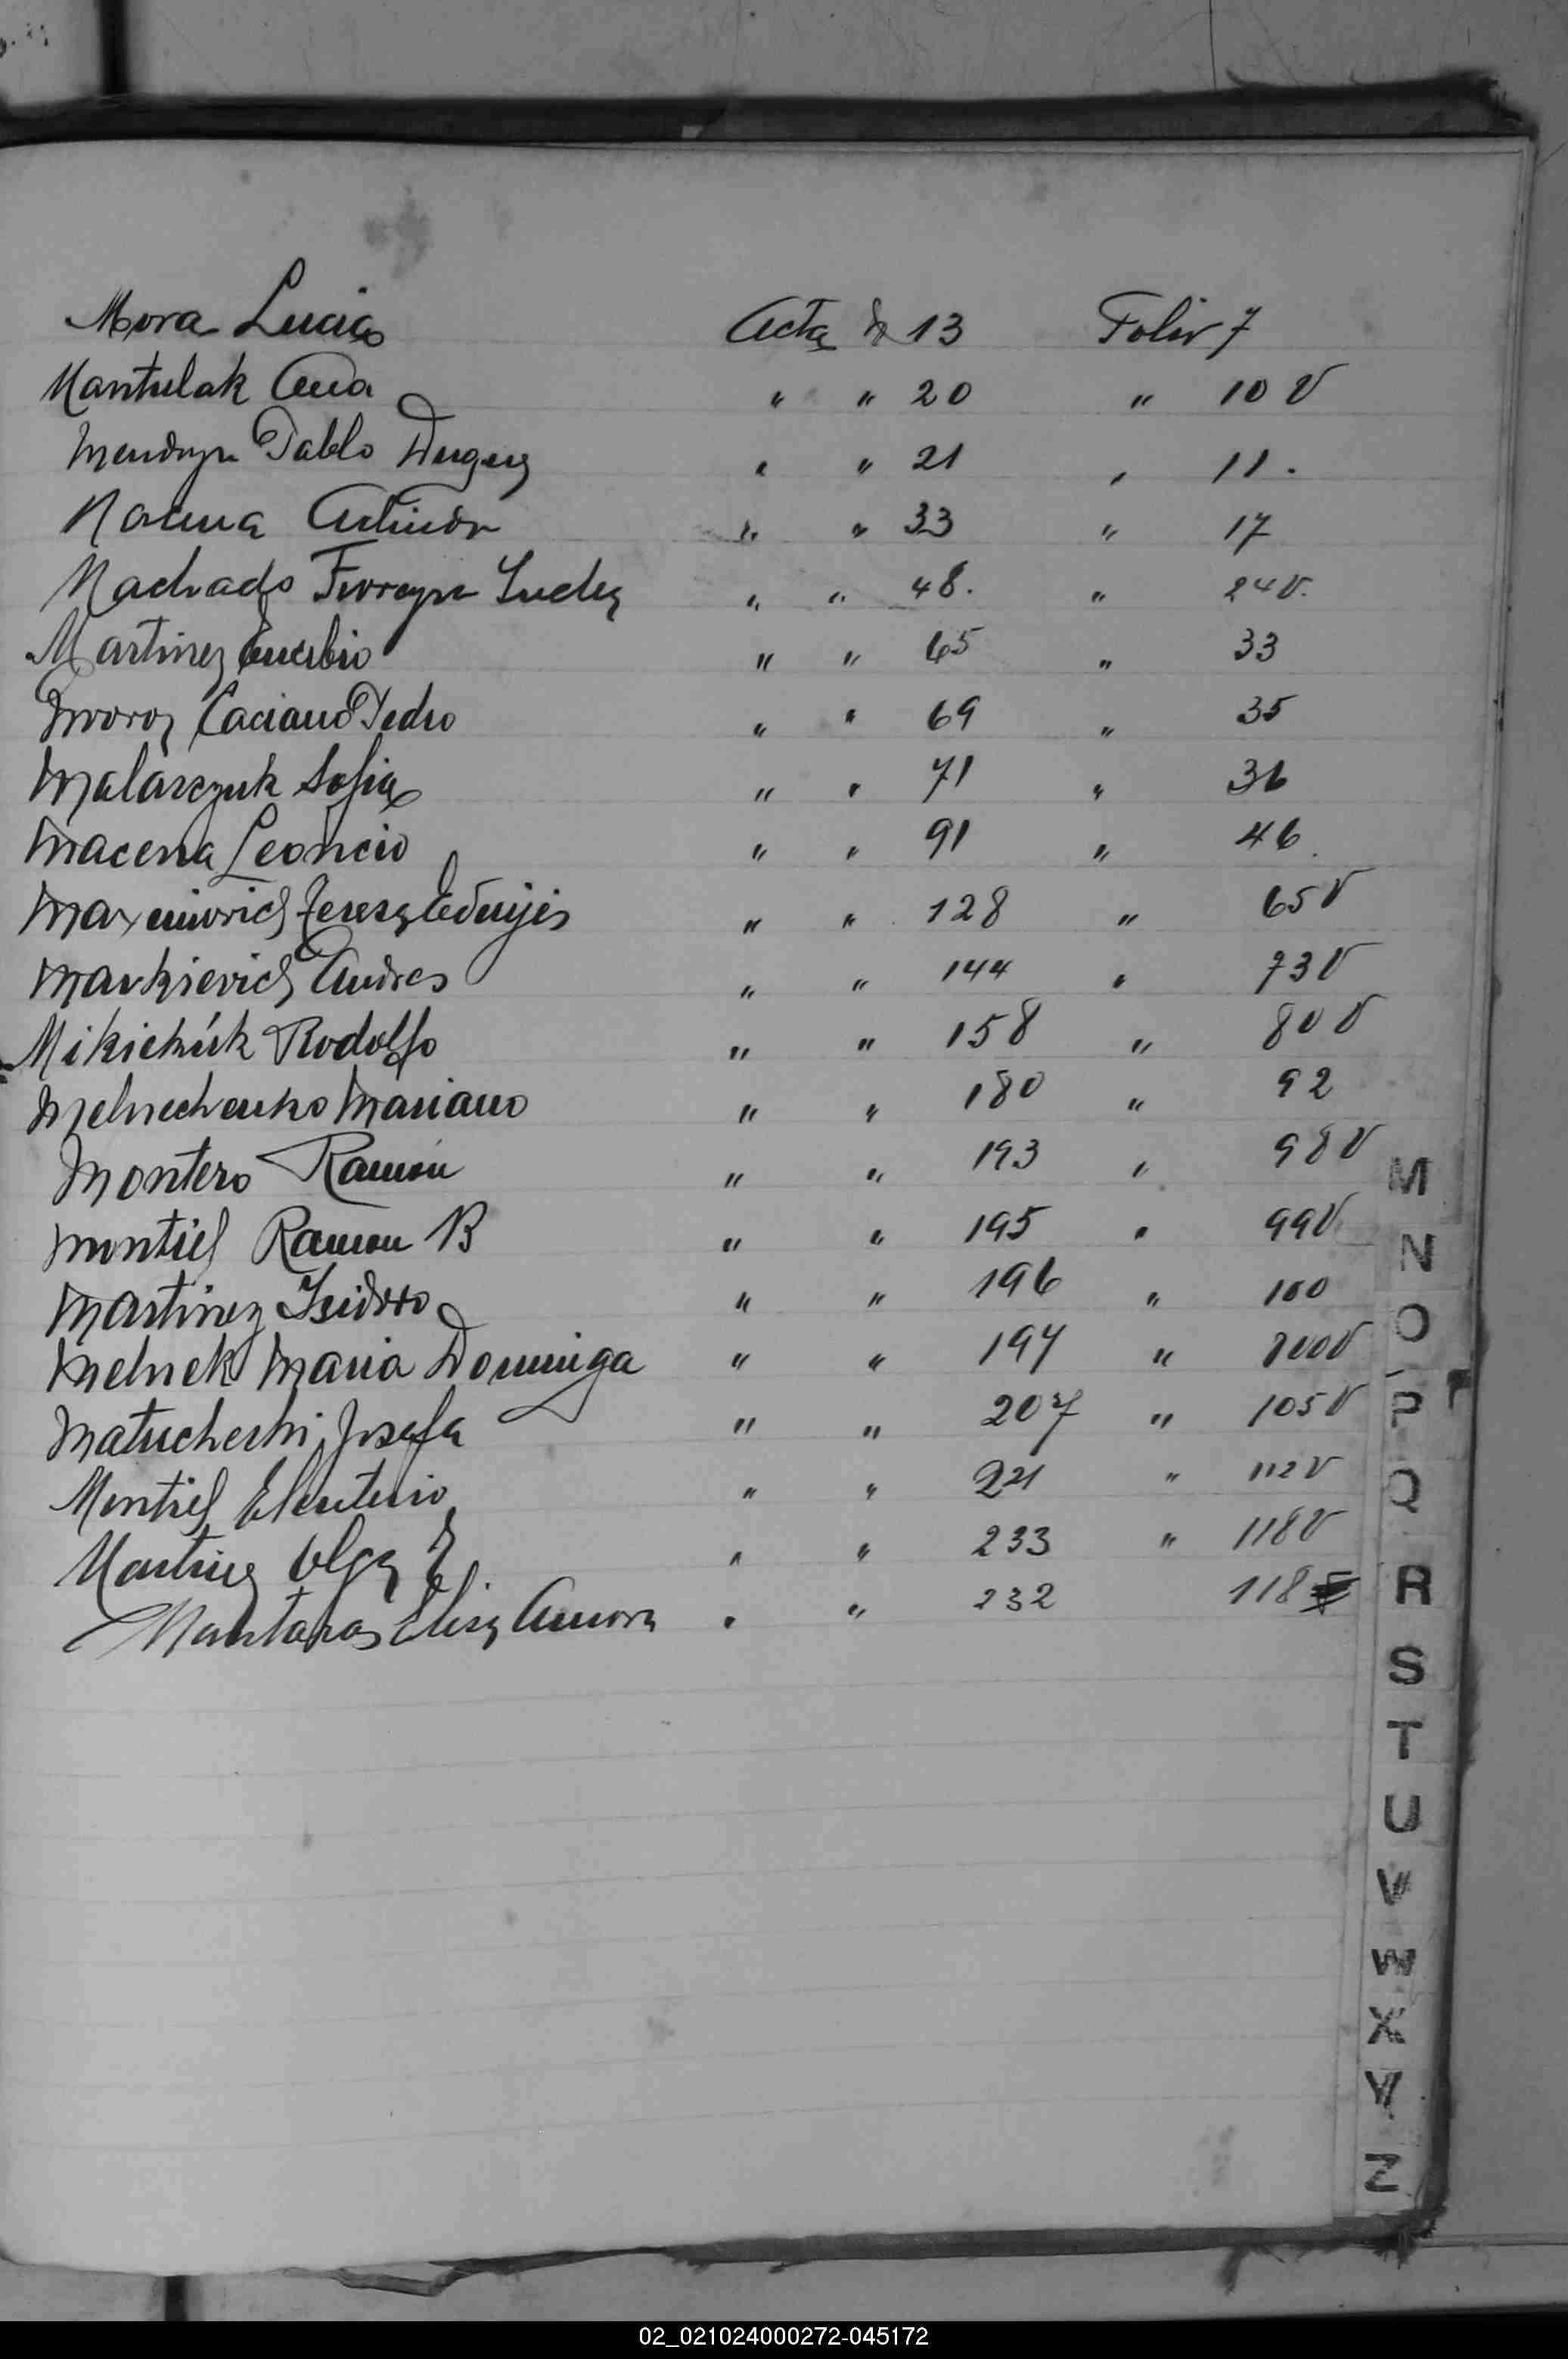 Mora Lucia Acta Nº 13 Folio 7
Mantulak Ana " " 20 " 10 V
Pablo " " 21 " 11.
" " 33 " 17
Machado Lucky " " 48. " 24 V.
Martinez Eucebio " " 65 " 33
Moroz Caciano Pedro " " 69 " 35
Malarczuk Sofia " " 71 " 36
Macena Leoncio " " 91 " 46.
Teresa Eduvijes " " 128 " 65 V
Markievich Andres " " 144 " 73 V
Mikichúk Rodolfo " " 158 " 80 V
Melnechenko Mariano " " 180 " 92
Montero Ramón " " 193 " 98 V
Montiel Ramon B " " 195 " 99 V
Martinez Isidro " " 196 " 100
Melnek Maria Dominga " " 197 " 100 V
Matucheski Josefa " " 207 " 105 V
Montiel Eleuterio " " 221 " 112 V
Martinez Olga E " " 233 " 118 V
Mantaras Elisa Amora " " 232 118
M
N
O
P
Q
R
S
T
U
V
W
X
Y
Z
02_021024000272-045172